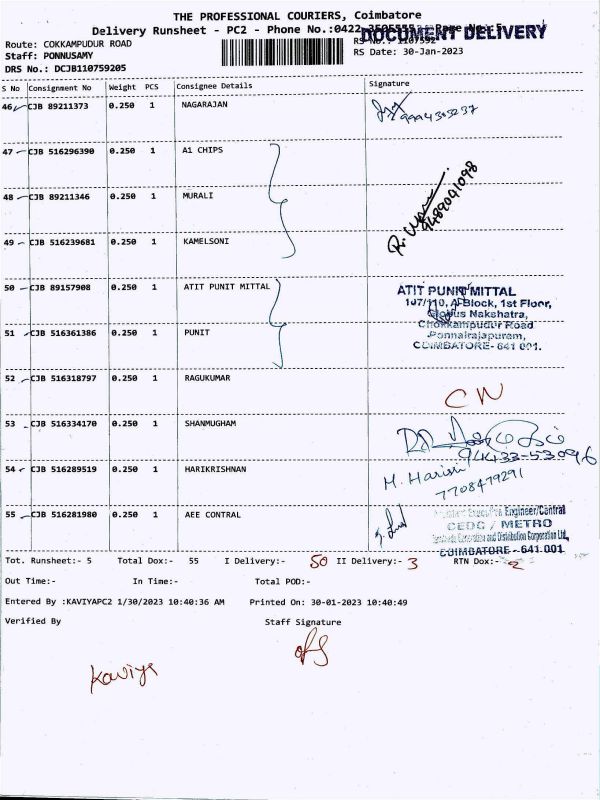 THE PROFESSIONAL COURIERS, Coimbatore
Delivery Runsheet - PC2 - Phone No.:0422-
DOCUMENT DELIVERY
Route: COKKAMPUDUR ROAD
Staff: PONNUSAMY
RS Date: 30-Jan-2023
DRS No.: DCJB110759205
S No Consignment No Weight PCS Consignee Details Signature
46 CJB 89211373 0.250 1 NAGARAJAN
47 CJB 516296390 0.250 1 A1 CHIPS
48 CJB 89211346 0.250 1 MURALI
9489041098
49 CJB 516239681 0.250 1 KAMELSONI
50 CJB 89157908 0.250 1 ATIT PUNIT MITTAL
ATIT PUNIT MITTAL
107/110, A Block, 1st Floor,
Globus Nakshatra,
Chokkampudur Road
51 CJB 516361386 0.250 1 PUNIT
Ponnairajapuram,
COIMBATORE- 641 001.
52 CJB 516318797 0.250 1 RAGUKUMAR
CN
53 CJB 516334170 0.250 1 SHANMUGHAM
94433-53096
54 CJB 516289519 0.250 1 HARIKRISHNAN
M. Harish
7708479291
55 CJB 516281980 0.250 1 AEE CENTRAL
Engineer/Central
CEDC / METRO
Generation and Distribution Corporation Ltd.,
COIMBATORE - 641 001
Tot. Runsheet:- 5 Total Dox:- 55 I Delivery:- 50 II Delivery:- 3 RTN Dox:- 2
Out Time:- In Time:- Total POD:-
Entered By :KAVIYAPC2 1/30/2023 10:40:36 AM Printed On: 30-01-2023 10:40:49
Verified By Staff Signature
Kaviya